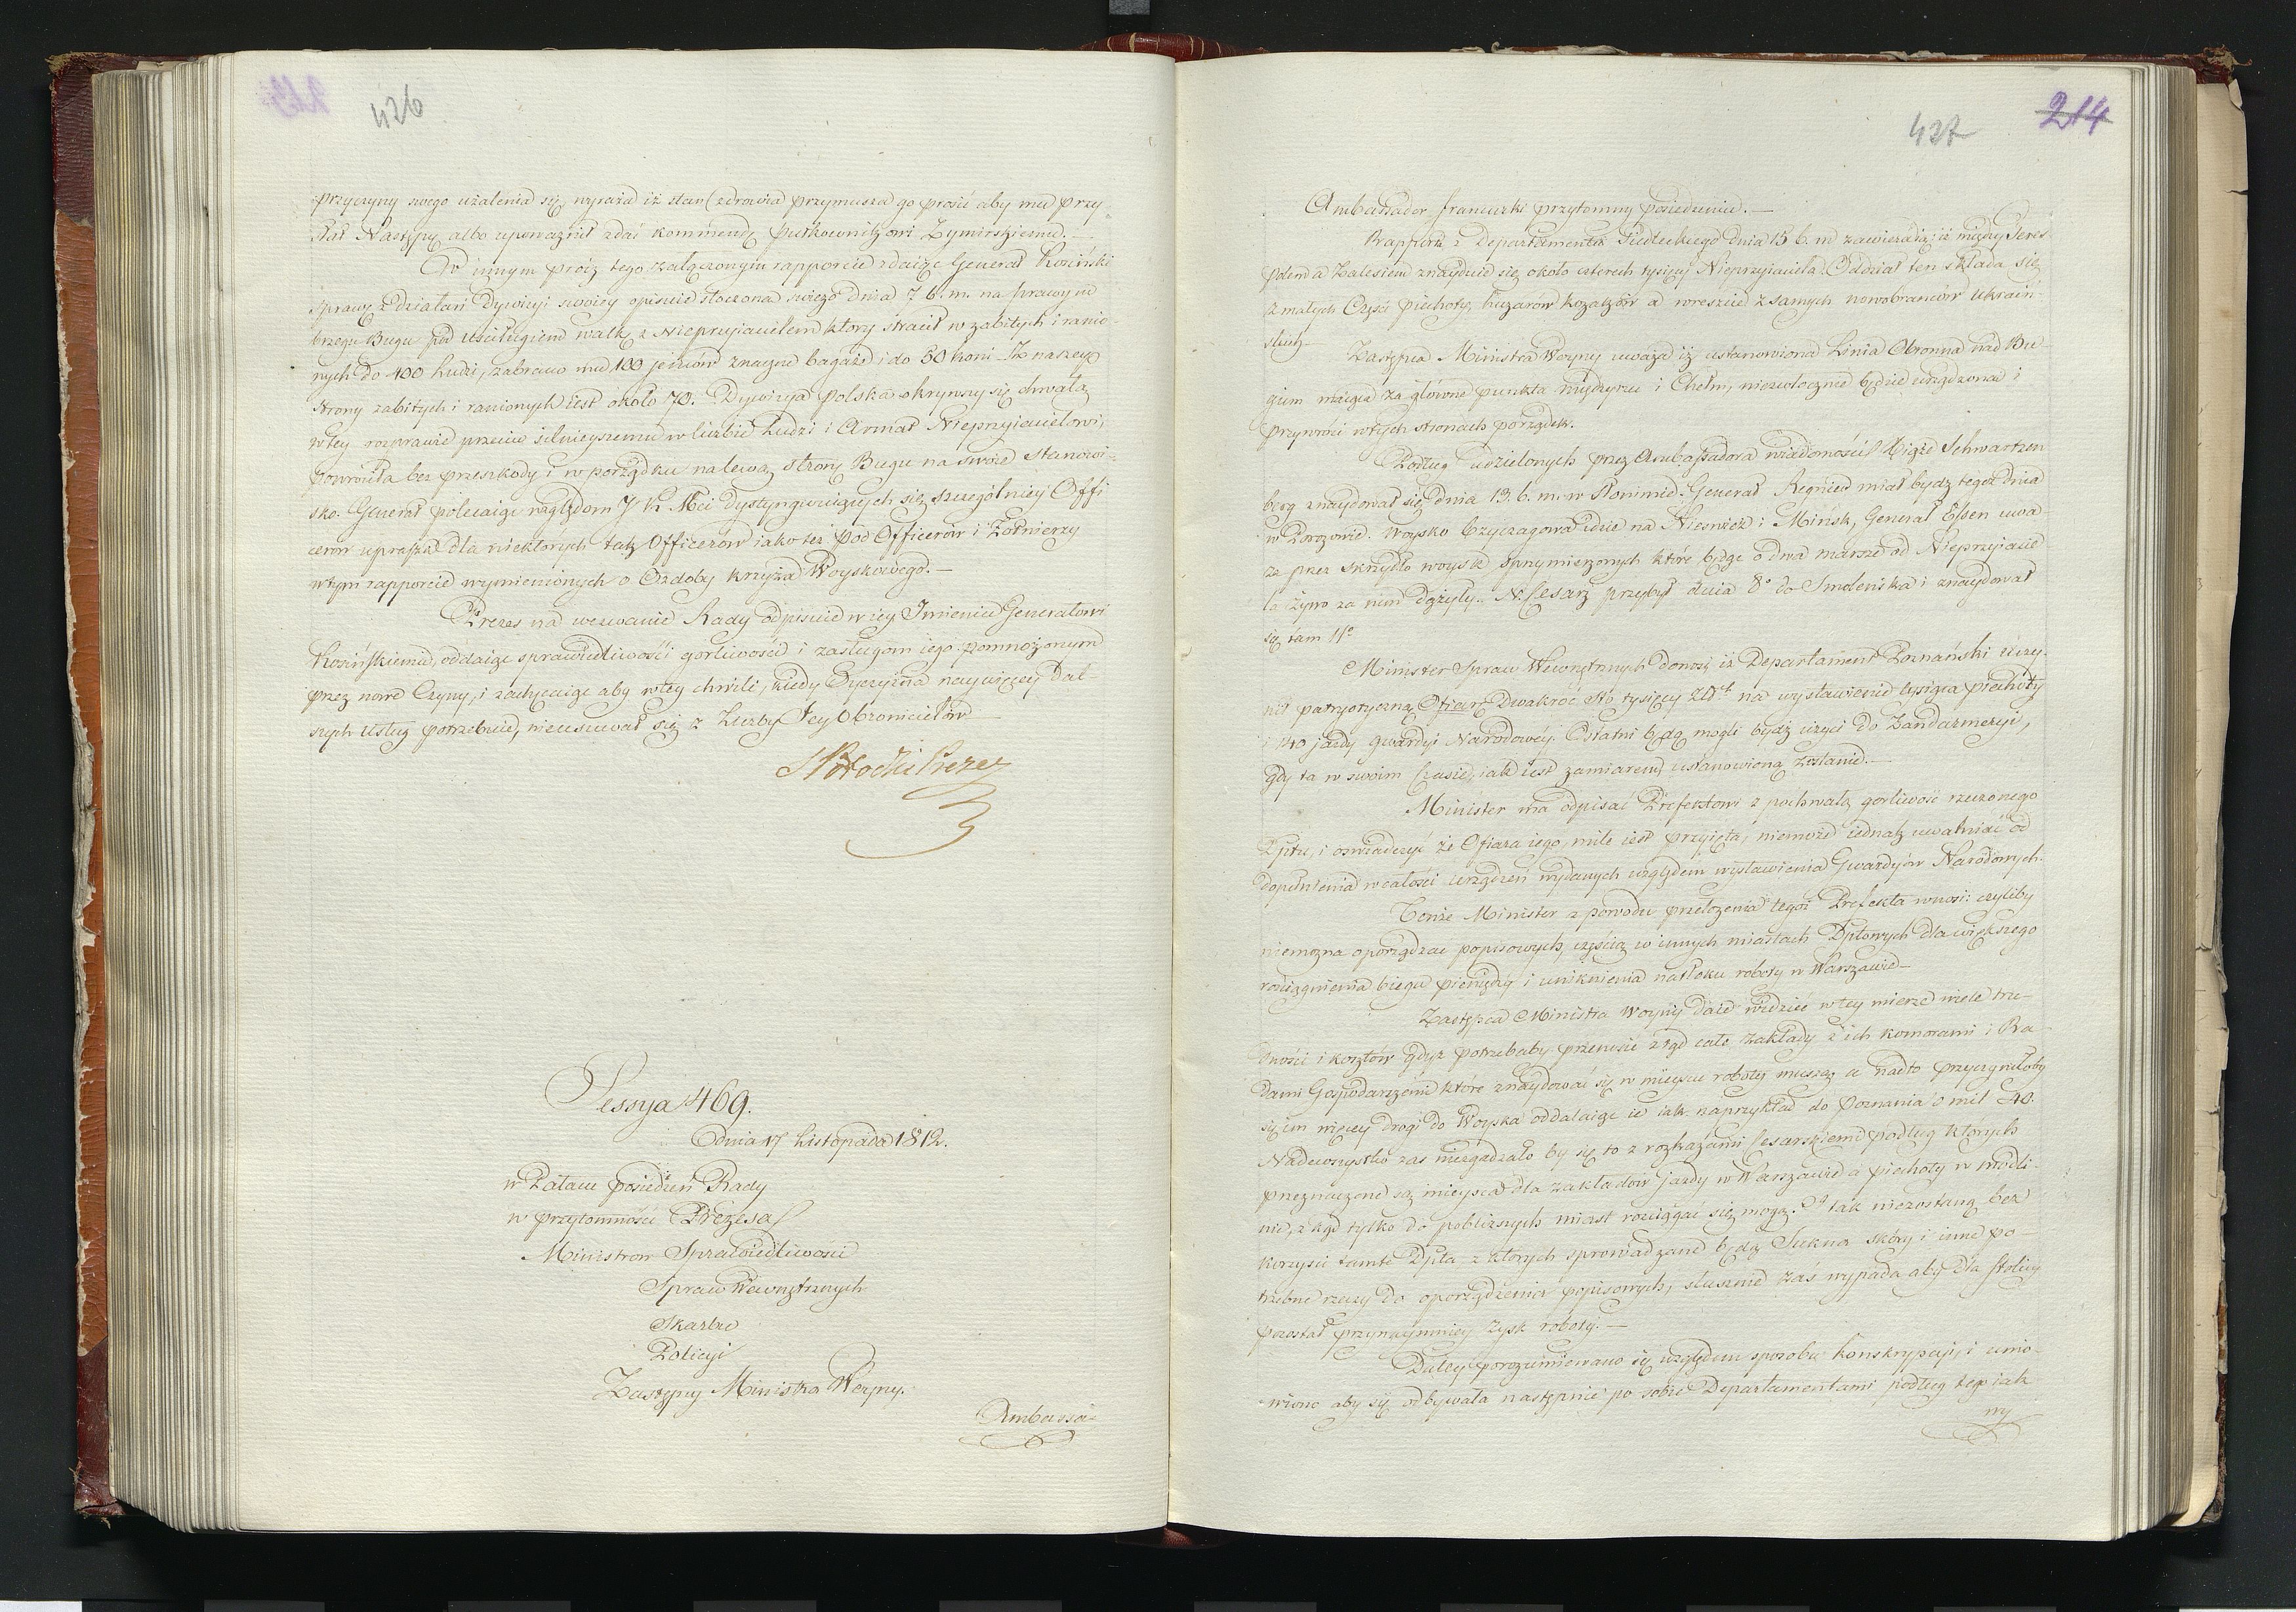 426
przyczyny swego użalenia się, wyraża iż stan zdrowia przymusza go prosić aby mu przy
słał Następcę albo upoważnił zdać kommendę pułkownikowi Żymirskiemu. —
W innym prócz tego załączonym rapporcie zdaiąc Generał Kosiński
sprawę z działań Dywizyi swoiey opisuie stoczoną świeżo dnia 7 b. m. na prawym
brzegu Bugu pod Uściługiem walkę z Nieprzyiacielem który stracił w zabitych i ranio-
nych do 400 ludzi, zabrano mu 100 jeńców znaczne bagaże i do 50 koni. Z naszey
strony zabitych i ranionych iest około 70. Dywizya polska okrywszy się chwałą
w tey rozprawie przeciw silnieyszemu w liczbie Ludzi i Armat Nieprzyiacielowi,
powróciła bez przeszkody i w porządku na lewą stronę Bugu na swoie stanowi-
sko. Generał polecaiąc względom J K Mci dystyngwuiących się szczególniey Offi
cerów uprasza dla niektórych tak Officerów iako też pod Officerów i Żołnierzy
w tym rapporcie wymienionych o Ozdoby Krzyża Woyskowego. —
Prezes na wezwanie Rady odpisuie w iey Imieniu Generałowi
Kosińskiemu, oddaiąc sprawiedliwość gorliwości i zasługom iego pomnożonym
przez nowe Czyny, i zachęcaiąc aby w tey chwili, kiedy Oyczyzna naywięcey dal-
szych usług potrzebuie, nieusuwał się z Liczby Jey Obrońców
S Potocki Prezes
Sessya 469.
dnia 17 Listopada 1812.
w Pałacu posiedzeń Rady
w przytomności Prezesa
Ministrow Sprawiedliwości
Spraw Wewnętrznych
Skarbu
Policyi
Zastępcy Ministra Woyny.
Ambassa-
427
214
Ambassador francuzki przytomny posiedzeniu. —
Rapport z Departamentu Siedleckiego dnia 15 b. m zawierada iż między Teres-
polem a Zalesiem znayduie się około czterech tysięcy Nieprzyiaciela. Oddział ten składa się
z małych Części piechoty, huzarów kozaków a wreszcie z samych nowobrańców Ukraiń-
skich —
Zastępca Ministra Woyny uważa iż ustanowiona Linia Obronna nad Bu-
giem maiąca za główne punkta Międzyrzec i Chełm, niezwłocznie będzie urządzona i
przywróci w tych stronach porządek.
Podług udzielonych przez Ambassadora wiadomości Xiąże Schwartzen
berg znaydował się dnia 13. b. m. w Słonimie. Generał Regnier miał bydź tegoż dnia
w Porozowie. Woysko Czyczagowa idzie na Nieśwież i Mińsk, Generał Essen uwa-
ża przez skrzydło woysk sprzymierzonych które będąc o dwa marsze od Nieprzyiacie
la żywo za nim dążyły. N. Cesarz przybył dnia 8º do Smoleńska i znaydował
się tam 11º
Minister Spraw Wewnętrznych donosi iż Departament Poznański uczy-
nił patryotyczną Ofiarę Dwakroć Sto tysięcy Złt na wystawienie tysiąca piechoty
i 140 jazdy gwardyi Narodowey. Ostatni będą mogli bydź użyci do Żandarmeryi,
gdy ta w swoim czasie, iak iest zamiarem, ustanowioną zostanie. —
Minister ma odpisać Prefektowi z pochwałą gorliwość rzeczonego
Dptu, i oświadczyć że Ofiara iego mile iest przyięta, niemoże iednak uwalniać od
dopełnienia w całości urządzeń wydanych względem wystawienia Gwardyów Narodowych.
Tenże Minister z powodu przełożenia tegoż Prefekta wnosi: czyliby
niemożna oporządzać popisowych, częścią w innych miastach Dptowych dla większego
rozciągnienia biegu pieniędzy i uniknienia natłoku roboty w Warszawie —
Zastępca Ministra Woyny daie widzieć w tey mierze wiele tru-
dności i kosztów gdyż potrzebaby przenosić zkąd całe zakłady z ich komorami i Ra-
dami Gospodarczemi które znaydować się w mieyscu roboty muszą a nadto przyczyniłoby
się im więcey drogi do Woyska oddalaiąc ie iak naprzykład do Poznania o mil 40.
Nadewszystko zaś niezgadzało by się to z rozkazami Cesarskiemi podług których
przeznaczone są mieysca dla zakładów jazdy w Warszawie a piechoty w Modli-
nie, zkąd tylko do pobliższych miast rozciągać się mogą. I tak niezostaną bez
korzyści tamte Dpta z których sprowadzane będą Sukna skóry i inne po-
trzebne rzeczy do oporządzenia popisowych, słusznie zaś wypada aby dla stolicy
pozostał przynaymniey zysk roboty. —
Daley porozumiewano się względem sposobu konskrypcyi, i umó-
wiono aby się odbywała następnie po sobie Departamentami podług tego iak
wy